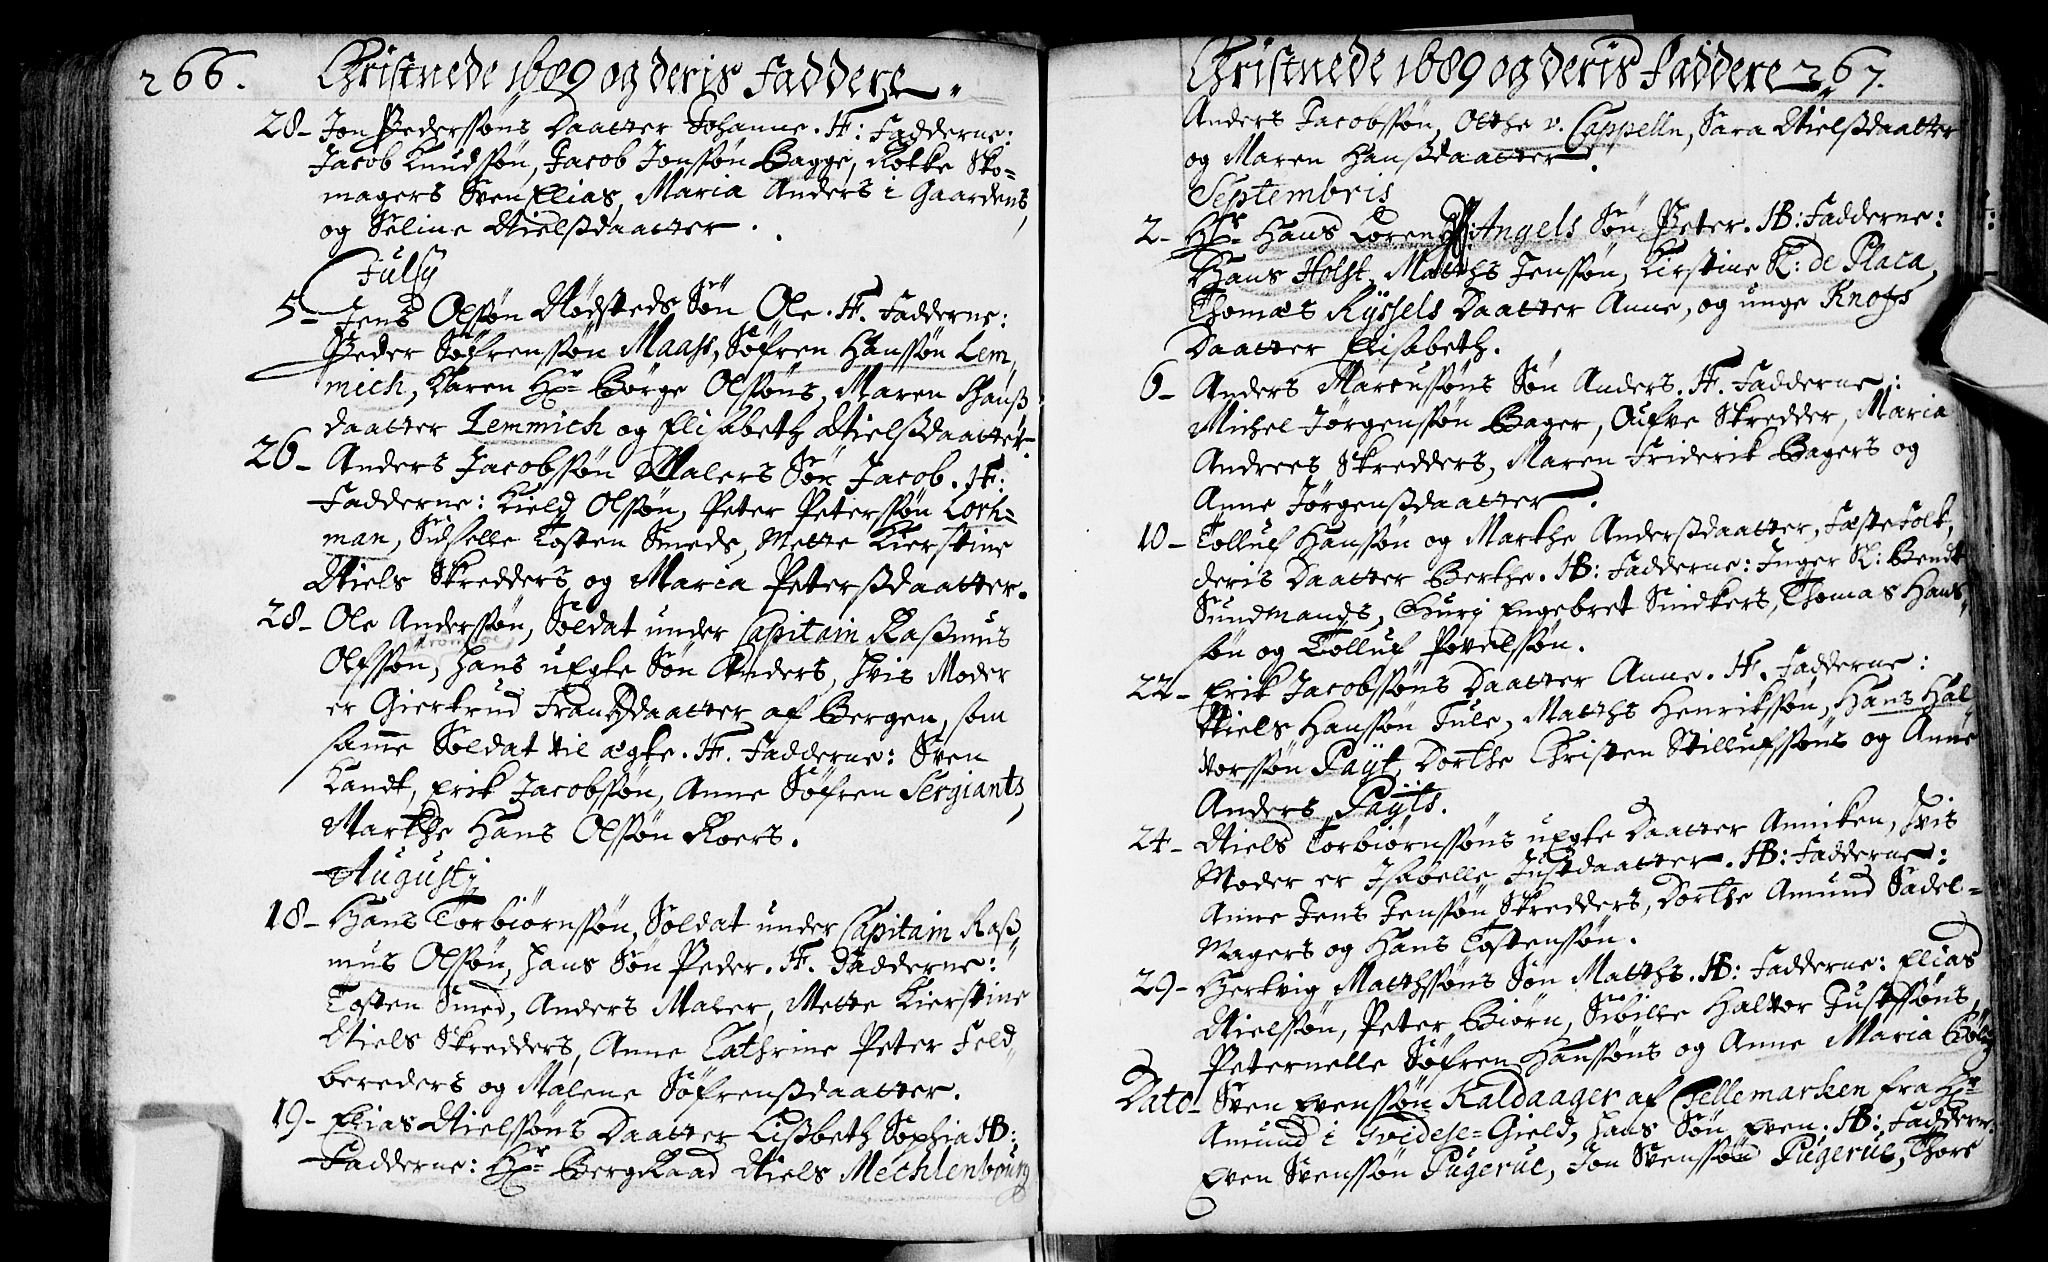 266. Christnede 1689 og deris Faddere.
28 - Jon Pederssøns Daatter Johanne. H: Fadderne:
Jacob Knudssøn, Jacob Jonssøn Bagge, Kokke Sko=
magers Sven Elias, Maria Anders i Gaardens,
og Seline Nielsdaatter.
July
5 - Jens Olssøn Rødsteds Søn Ole. H. Fadderne:
Peder Søfrenssøn Maass, Søfren Hanssøn Lem,,
mich, Karen Hr. Børge Olssøns, Maren Hanß
daatter Lemmich og Elisabeth Nielßdaatter.
26 - Anders Jacobssøn Malers Søn Jacob. H:
Fadderne: Kield Olssøn, Peter Peterssøn Loch=
man, Sidselle Tosten Smeds, Mette Kierstine
Niels Skredders og Maria Petersdaatter.
28 - Ole Anderssøn, Soldat under Capitain Raßmus
Olessøn, hans uEgte Søn Anders, hvis Moder
er Giertrud Frantzdaatter af Bergen, som
samme Soldat til ægte. H. Fadderne: Sven
Kandt, Erik Jacobssøn, Anne Søfren Sergiants,
Marthe Hans Olssøn Roers.
Augusti
18 - Hans Torbiørnssøn, Soldat under Capitain Raß,,
mus Olssøn, hans Søn Peder. H. Fadderne:
Tosten Smed, Anders Maler, Mette Kierstine
Niels Skredders, Anne Cathrine Peter Feld,,
bereders og Malene Søfrensdaatter.
19 - Elias Nielssøns Daatter Lisbeth Sophia HB:
Fadderne: Hr. BergRaad Niels Mechlenbourg
Christnede 1689 og deris Faddere 267.
Anders Jacobssøn, Otthe v. Cappelln, Sara Nielßdaatter
og Maren Hanßdaatter.
Septembris
2 - Hr. Hans Lorentz Angels Søn Peter. HB: Fadderne:
Hans Holst, Matths Jenssøn, Kirstine Sl: de Placa,
Thomas Ryssels Daatter Anne, og unge Knoffs
Daatter Elisabeth.
6 - Anders Marcussøns Søn Anders. H. Fadderne:
Michel Jørgenssøn Bager, Oufve Skredder, Maria
Andrees Skredders, Maren Friderik Bagers og
Anne Jørgensdaatter.
10 - Tolluf Hanssøn og Marthe Andersdaatter, Fæstefolk,
deris Daatter Berthe. HB: Fadderne: Inger Sl: Bendt
Sundmands, Gury Engebret Snidkers, Thomas Hans,,
søn og Tolluf Povelssøn.
22 - Erik Jacobssøns Daatter Anne. H. Fadderne:
Niels Hanssøn Tule, Matths Henrikssøn, Hans Hal
vorssøn Payt, Dorthe Christen Stillufssøns og Anne
Anders Payts.
24 - Niels Torbiørnssøns uEgte Daatter Anniken, hvis
Moder er Isabelle Justdaatter. HB: Fadderne:
Anne Jens Jenssøn Skredders, Dorthe Amund Sadel=
Magers og Hans Tostenssøn.
29 - Hertvig Matthssøns Søn Matths. HB: Fadderne: Elias
Nielssøn, Peter Biørn, Sibille Halvor Justssøns,
Peternelle Søfren Hanssøns og Anne Maria
Dato - Sven Evenssøn Kaldaager af Tellemarken fra Hr.
Amund i Hvidese=Gield, hans Søn Even. HB: Fadderne
Even Svenssøn Pugerul, Jon Svenssøn Pugerul, Thore